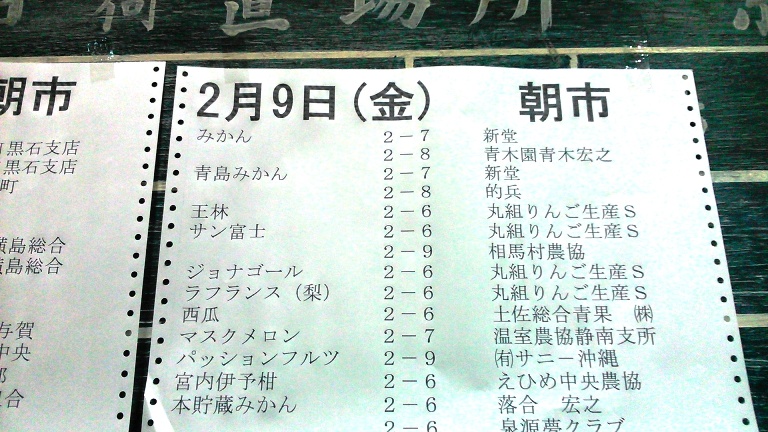 荷置場所
朝市
黒石支店
黒石支店
町
横島総合
横島総合
与賀
中央
2月9日(金) 朝市
みかん 2－7 新堂
2－8 青木園青木宏之
青島みかん 2－7 新堂
2－8 的兵
王林 2－6 丸組りんご生産S
サン富士 2－6 丸組りんご生産S
2－9 相馬村農協
ジョナゴール 2－6 丸組りんご生産S
ラフランス（梨） 2－6 丸組りんご生産S
西瓜 2－6 土佐総合青果 ㈱
マスクメロン 2－7 温室農協静南支所
パッションフルツ 2－9 ㈲サニー沖縄
宮内伊予柑 2－6 えひめ中央農協
本貯蔵みかん 2－6 落合 宏之
2－6 泉源夢クラブ